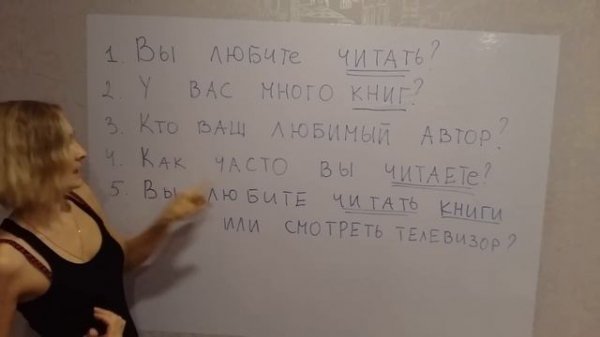 1. Вы любите читать?
2. У вас много книг?
3. Кто ваш любимый автор?
4. Как часто вы читаете?
5. Вы любите читать книги
или смотреть телевизор?